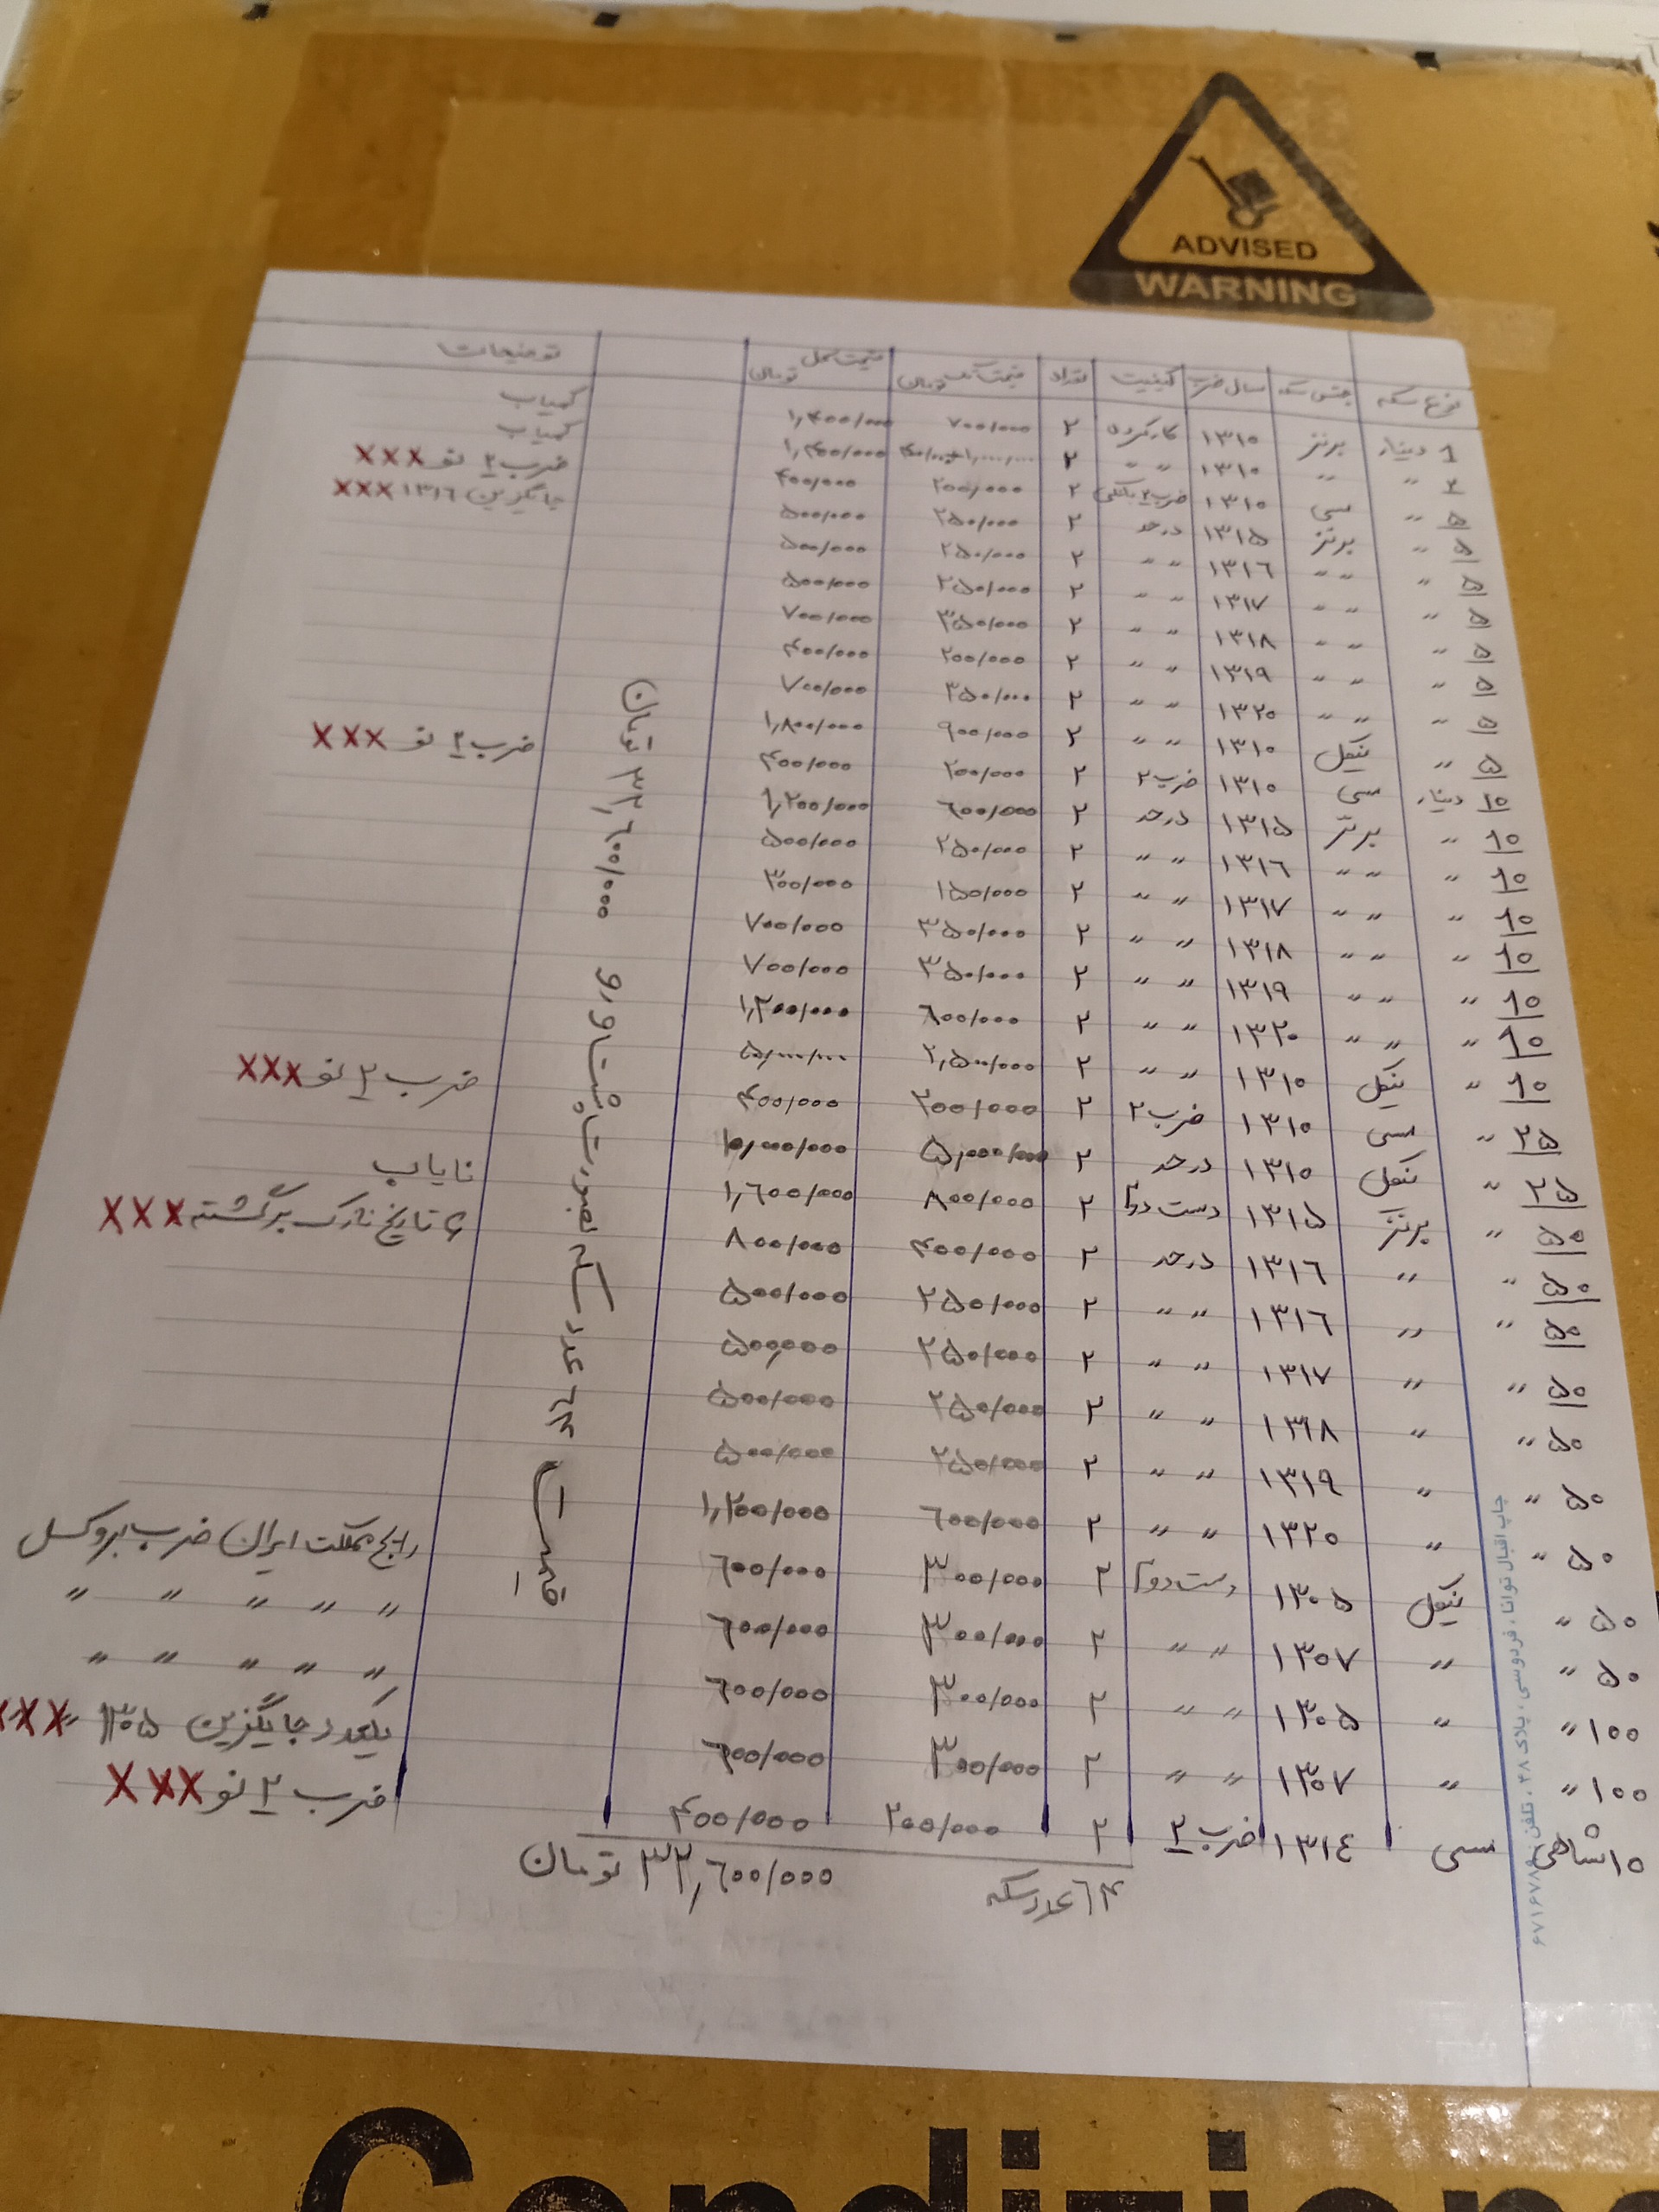 نوع سکه جنس سکه سال ضرب کیفیت تعداد قیمت تک تومان قیمت کل تومان توضیحات
1 دینار برنز ۱۳۱۰ کارکرده ۲ ۷۰۰/۰۰۰ ۱,۴۰۰/۰۰۰ کمیاب
۲ " " " ۱۳۱۰ " " ۲ ۴۰۰/۰۰۰+۱,۰۰۰/۰۰۰ ۱,۴۰۰/۰۰۰ کمیاب
۵ " مسی ۱۳۱۰ ضرب ۲ بانکی ۲ ۲۰۰/۰۰۰ ۴۰۰/۰۰۰ ضرب ۲ نو XXX
۵ " برنز ۱۳۱۵ درحد ۲ ۲۵۰/۰۰۰ ۵۰۰/۰۰۰ جایگزین ۱۳۱۶ XXX
۵ " " " ۱۳۱۶ " " ۲ ۲۵۰/۰۰۰ ۵۰۰/۰۰۰
۵ " " " ۱۳۱۷ " " ۲ ۲۵۰/۰۰۰ ۵۰۰/۰۰۰
۵ " " " ۱۳۱۸ " " ۲ ۳۵۰/۰۰۰ ۷۰۰/۰۰۰
۵ " " " ۱۳۱۹ " " ۲ ۲۰۰/۰۰۰ ۴۰۰/۰۰۰
۵ " " " ۱۳۲۰ " " ۲ ۳۵۰/۰۰۰ ۷۰۰/۰۰۰
۵ " نیکل ۱۳۱۰ " " ۲ ۹۰۰/۰۰۰ ۱,۸۰۰/۰۰۰
۱۰ دینار مسی ۱۳۱۰ ضرب ۲ ۲ ۲۰۰/۰۰۰ ۴۰۰/۰۰۰ ضرب ۲ نو XXX
۱۰ " برنز ۱۳۱۵ درحد ۲ ۶۰۰/۰۰۰ ۱,۲۰۰/۰۰۰
۱۰ " " " ۱۳۱۶ " " ۲ ۲۵۰/۰۰۰ ۵۰۰/۰۰۰
۱۰ " " " ۱۳۱۷ " " ۲ ۱۵۰/۰۰۰ ۳۰۰/۰۰۰
۱۰ " " " ۱۳۱۸ " " ۲ ۳۵۰/۰۰۰ ۷۰۰/۰۰۰
۱۰ " " " ۱۳۱۹ " " ۲ ۳۵۰/۰۰۰ ۷۰۰/۰۰۰
۱۰ " " " ۱۳۲۰ " " ۲ ۶۰۰/۰۰۰ ۱,۲۰۰/۰۰۰
۱۰ " نیکل ۱۳۱۰ " " ۲ ۲,۵۰۰/۰۰۰ ۵,۰۰۰/۰۰۰
۲۵ " مسی ۱۳۱۰ ضرب ۲ ۲ ۲۰۰/۰۰۰ ۴۰۰/۰۰۰ ضرب ۲ نو XXX
۲۵ " نیکل ۱۳۱۰ درحد ۲ ۵,۰۰۰/۰۰۰ ۱۰,۰۰۰/۰۰۰ نایاب
۵۰ " برنز ۱۳۱۵ دست دوم ۲ ۸۰۰/۰۰۰ ۱,۶۰۰/۰۰۰ ۶ تاریخ نازک برگشته XXX
۵۰ " " ۱۳۱۶ درحد ۲ ۴۰۰/۰۰۰ ۸۰۰/۰۰۰
۵۰ " " ۱۳۱۶ " " ۲ ۲۵۰/۰۰۰ ۵۰۰/۰۰۰
۵۰ " " ۱۳۱۷ " " ۲ ۲۵۰/۰۰۰ ۵۰۰,۰۰۰
۵۰ " " ۱۳۱۸ " " ۲ ۲۵۰/۰۰۰ ۵۰۰/۰۰۰
۵۰ " " ۱۳۱۹ " " ۲ ۲۵۰/۰۰۰ ۵۰۰/۰۰۰
۵۰ " " ۱۳۲۰ " " ۲ ۶۰۰/۰۰۰ ۱,۲۰۰/۰۰۰
۵۰ " نیکل ۱۳۰۵ دست دوم ۲ ۳۰۰/۰۰۰ ۶۰۰/۰۰۰ رایج مملکت ایران ضرب بروکسل
۵۰ " " ۱۳۰۷ " " ۲ ۳۰۰/۰۰۰ ۶۰۰/۰۰۰ " " " " "
۱۰۰ " " ۱۳۰۵ " " ۲ ۳۰۰/۰۰۰ ۶۰۰/۰۰۰ " " " " "
۱۰۰ " " ۱۳۰۷ " " ۲ ۳۰۰/۰۰۰ ۶۰۰/۰۰۰ یکعدد جایگزین ۱۳۰۵ XXX
۱۰شاهی مسی ۱۳۱٤ ضرب ۲ ۲ ۲۰۰/۰۰۰ ۴۰۰/۰۰۰ ضرب ۲ نو XXX
۶۴ عدد سکه ۳۲,۶۰۰/۰۰۰ تومان
قیمت ۶۴ عدد سکه بصورت پشت و رو ۳۲,۶۰۰/۰۰۰ تومان
چاپ اقبال توانا، فردوسی، پلاک ۴۸، تلفن
ADVISED
WARNING